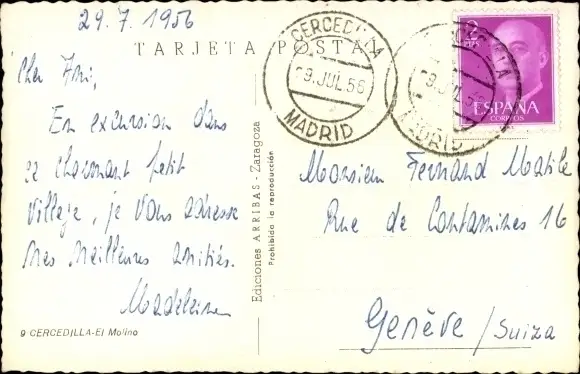 29.7.1956
TARJETA POSTAL
Cher Ami,
En excursion dans
ce charmant petit
village, je vous adresse
mes meilleures amitiés.
Madeleine
9 CERCEDILLA-El Molino
Ediciones ARRIBAS - Zaragoza
Prohibida la reproducción
CERCEDILLA
9 JUL 56
MADRID
CERCEDILLA
9 JUL 56
MADRID
2
PTS
ESPAÑA
CORREOS
Monsieur Fernand Matile
Rue de Contamines 16
Genève / Suiza